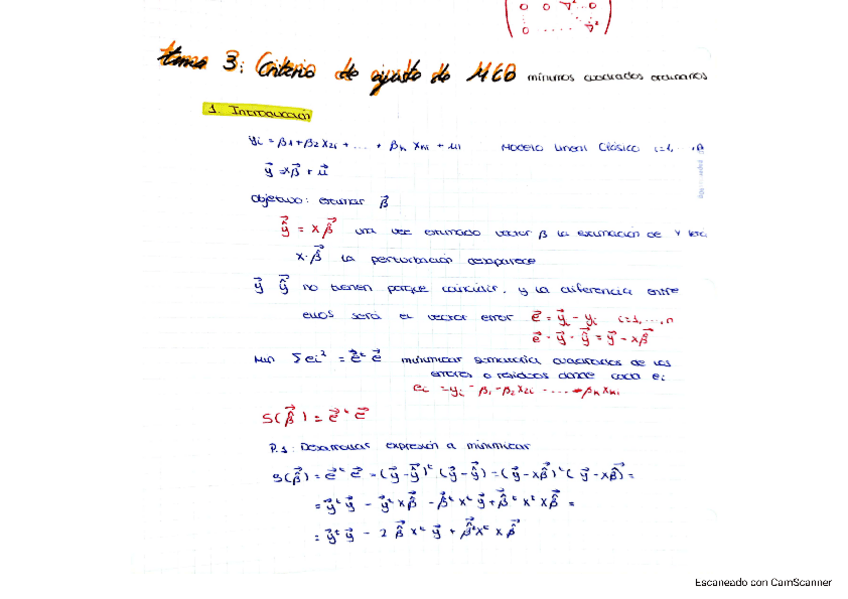 0 0 ∇² 0
0 .... ∇²
tema 3: Criterio de ajuste de MCO mínimos cuadrados ordinarios
1. Introducción
yi = β1+β2 X2i + ... + βk Xki + ui modelo lineal clásico i=1,
y⃗ = xβ⃗ + u⃗
Objetivo: estimar β⃗
ŷ⃗ = x β̂⃗ una vez estimado vector β la estimación de y será
x·β̂⃗ la perturbación desaparece
y⃗ ŷ⃗ no tienen porque coincidir, y la diferencia entre
ellos será el vector error e⃗ = y⃗i - yi i=1,...,n
e⃗ = y⃗ - ŷ⃗ = y⃗ - xβ̂⃗
Min Σei² = e⃗ᵗ e⃗ minimizar sumatorio cuadrados de los
errores o residuos donde cada ei
ei = yi - β1 - β2 X2i - ... - βk Xki
S(β̂⃗) = e⃗ᵗ e⃗
P.1: Desarrollar expresión a minimizar
S(β̂⃗) = e⃗ᵗ e⃗ = (y⃗-ŷ⃗)ᵗ.(y⃗-ŷ⃗) = (y⃗-xβ̂⃗)ᵗ(y⃗-xβ̂⃗) =
= y⃗ᵗ y⃗ - y⃗ᵗ xβ̂⃗ - β̂⃗ᵗ xᵗ y⃗ + β̂⃗ᵗ xᵗ xβ̂⃗ =
= y⃗ᵗ y⃗ - 2 β̂⃗ xᵗ y⃗ + β̂⃗ᵗ xᵗ x β̂⃗
Escaneado con CamScanner